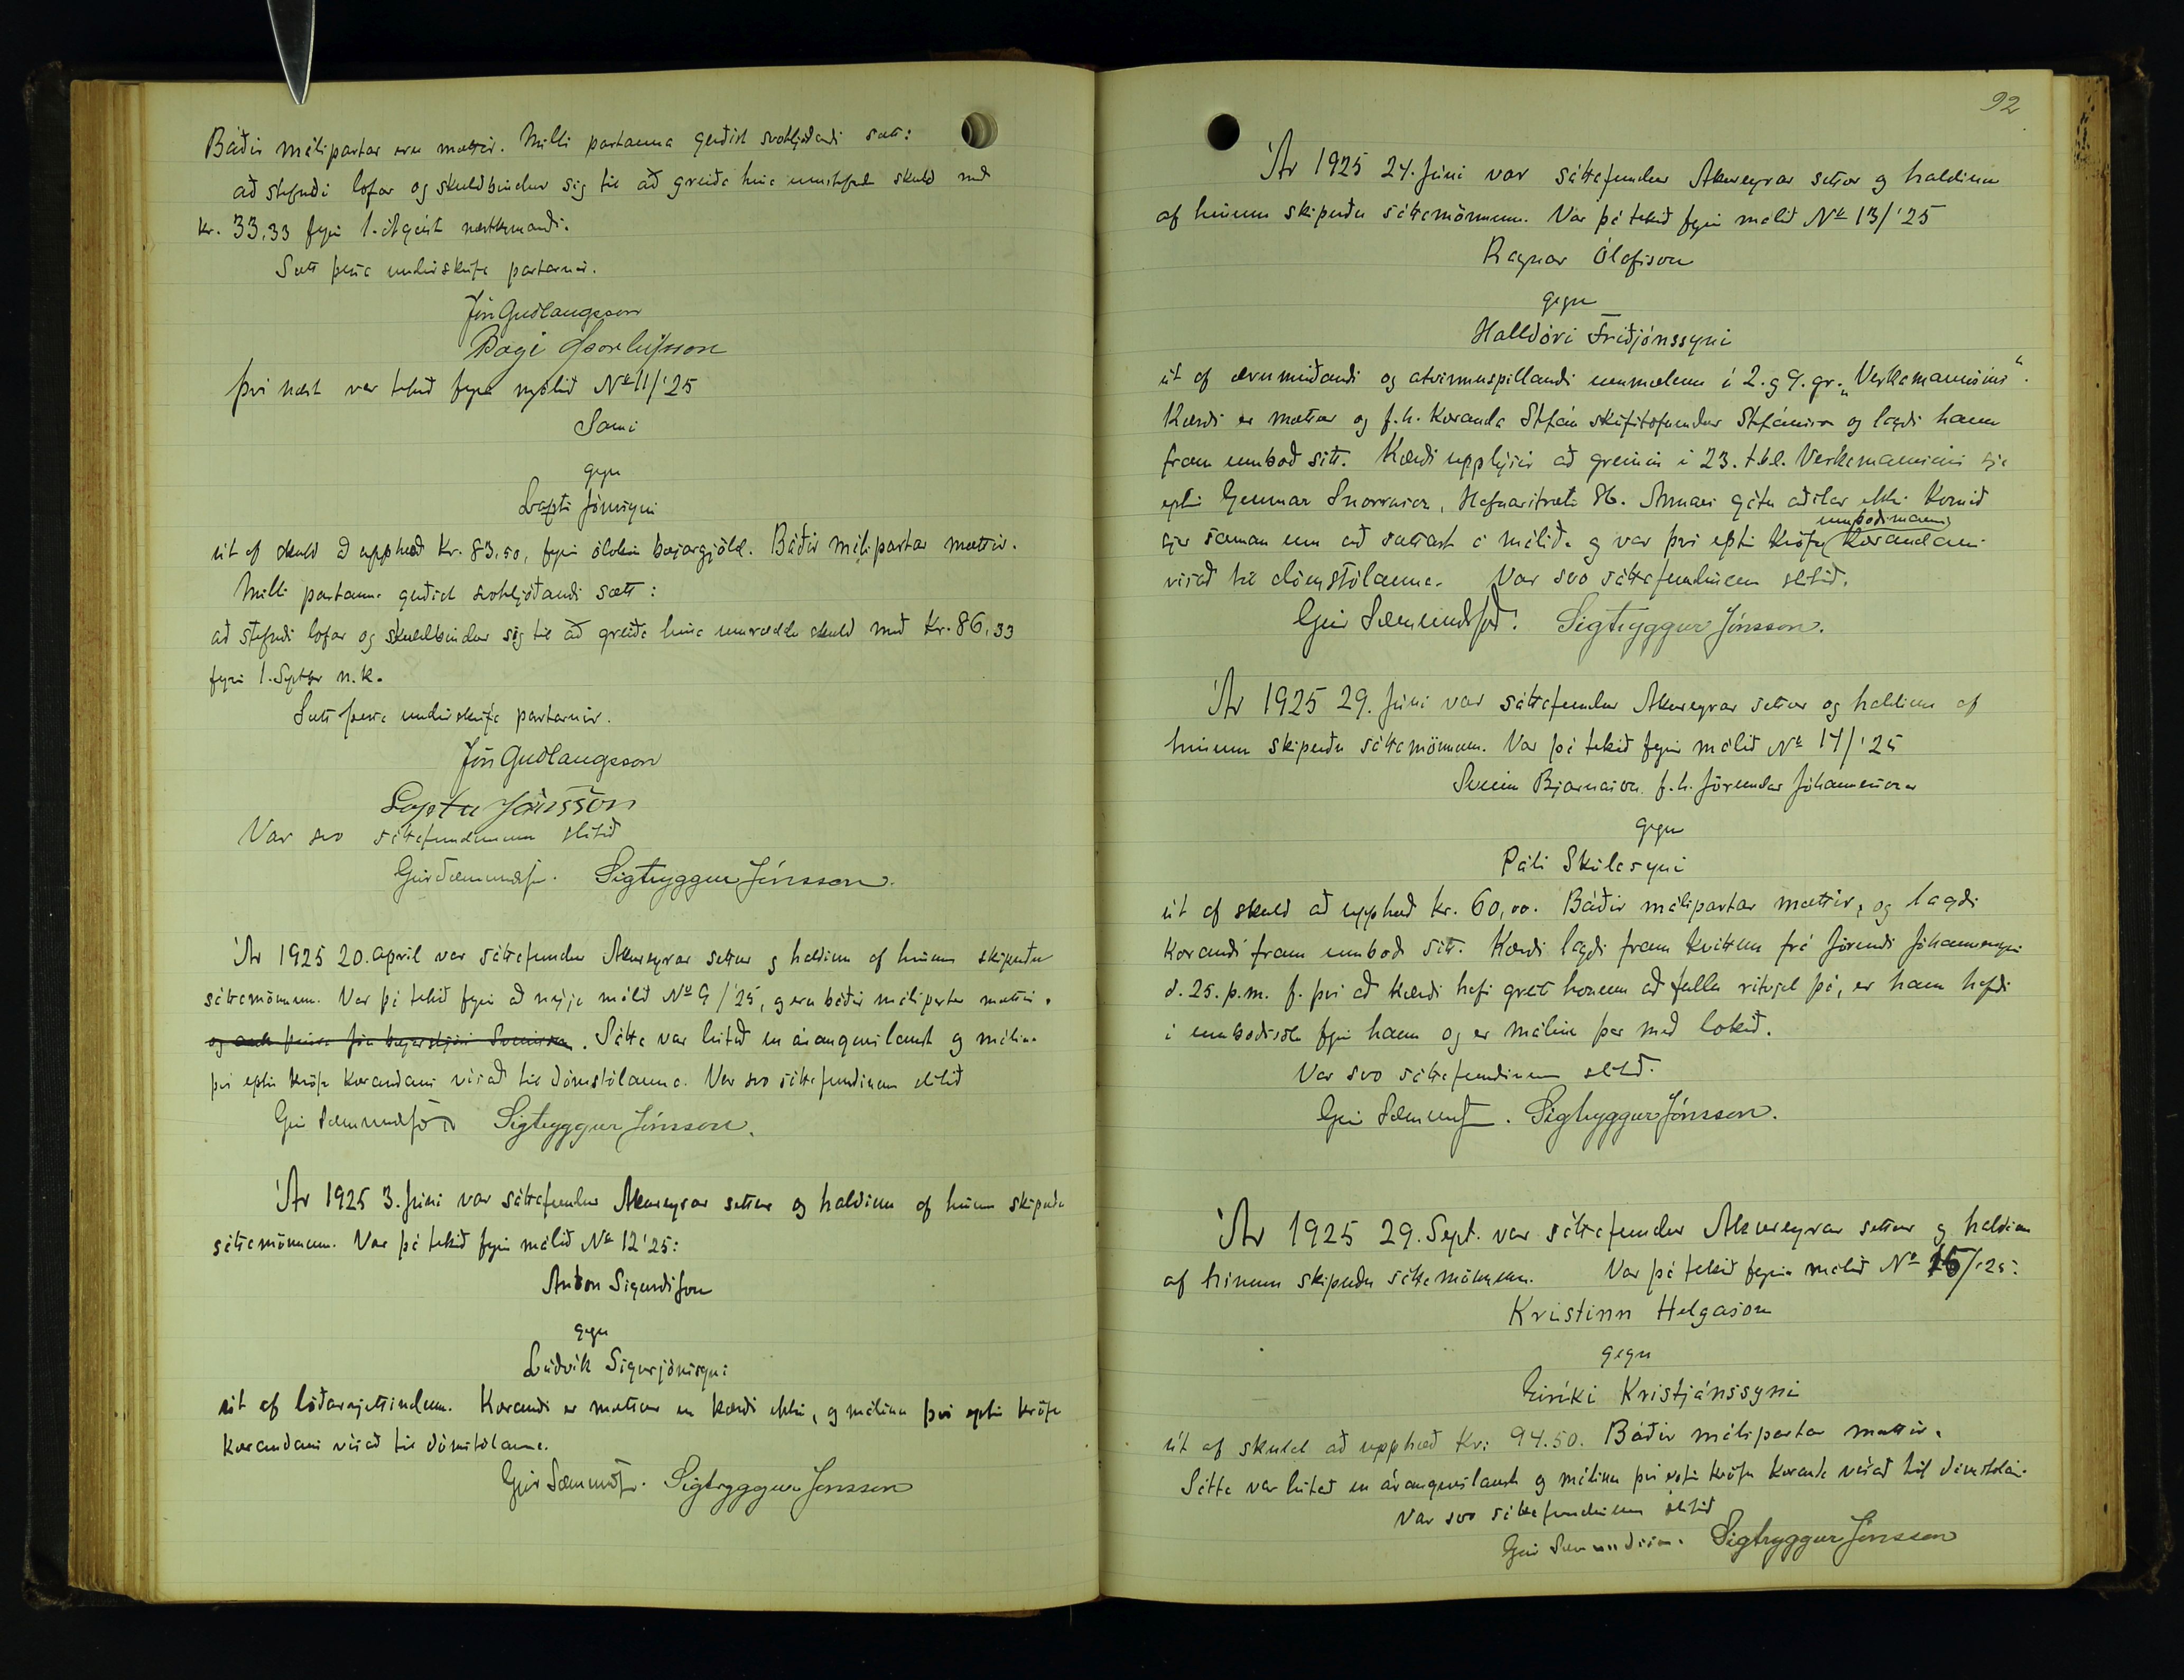 Báðir málspartar eru mættir. Milli partanna gerðist svohljóðandi sætt:
að stefndi lofar og skuldbindur sig til að greiða hina umstefndu skuld með
kr. 33,33 fyrir 1. ágúst næstkomandi.
Sætt þessa undirskrifa partarnir.
Jón Guðlaugsson
Bogi Þorleifsson
Því næst var tekið fyrir málið No 11/'25
Sami
gegn
Lopti Jónssyni
út af skuld að upphæð kr. 83,50, fyrir ólokin bæjargjöld. Báðir málspartar mættir.
Milli partanna gerðist svohljóðandi sætt:
að stefndi lofar og skuldbindur sig til að greiða hina umræddu skuld með kr. 86,33
fyrir 1. Septbr n.k.
Sætt þessa undirskrifa partarnir.
Jón Guðlaugsson
Loptur Jónsson
Var svo sáttafundinum slitið
Geir Sæmundss. Sigtryggur Jónsson.
Ár 1925 20. apríl var sáttafundur Akureyrar settur og haldinn af hinum skipuðu
sáttamönnum. Var þá tekið fyrir að nýju málið No 9/'25, og eru báðir málspartar mættir.
og Sátta var leitað en árangurslaust og málinu
því eptir kröfu kærandans vísað til dómstólanna. Var svo sáttafundinum slitið
Geir Sæmundsson Sigtryggur Jónsson.
Ár 1925 3. Júní var sáttafundur Akureyrar settur og haldinn af hinum skipuðu
sáttamönnum. Var þá tekið fyrir málið No 12'25:
Anton Sigurðsson
gegn
Lúðvík Sigurjónssyni
út af lóðarrjettindum. Kærandi er mættur en kærði ekki, og málinu því eptir kröfu
kærandans vísað til dómstólanna.
Geir Sæmundss. Sigtryggur Jónsson
92
Ár 1925 24. Júní var sáttafundur Akureyrar settur og haldinn
af hinum skipuðu sáttamönnum. Var þá tekið fyrir málið No 13/'25
Ragnar Ólafsson
gegn
Halldóri Friðjónssyni
út af ærumeiðandi og atvinnuspillandi ummælum í 2. og 9. gr. „Verkamannsins“.
Kærði er mættur og f.h. kæranda Stefán skrifstofustjóri Stefánsson og lagði hann
fram umboð sitt. Kærði upplýsir að greinin í 23. tbl. Verkamannsins sje
eptir Gunnar Snorrason, Hafnarstræti 86. Annars gátu aðilar ekki komið
umboðsmanns
sjer saman um að sættast á málið og var því eptir kröfu kærandans
vísað til dómstólanna. Var svo sáttafundinum slitið.
Geir Sæmundsson. Sigtryggur Jónsson.
Ár 1925 29. Júní var sáttafundur Akureyrar settur og haldinn af
hinum skipuðu sáttamönnum. Var þá tekið fyrir málið No 14/'25
Sveinn Bjarnason f.h. Jörundar Jóhannessonar
gegn
Páli Skúlasyni
út af skuld að upphæð kr. 60,00. Báðir málspartar mættir, og lagði
kærandi fram umboð sitt. Kærði lagði fram kvittun frá Jörundi Jóhannessyni
d. 25. þ.m. f. því að kærði hafi greitt honum að fullu víxil þá, er hann hafði
í umboðssölu fyrir hann og er málinu þar með lokið.
Var svo sáttafundinum slitið.
Geir Sæmundss. Sigtryggur Jónsson.
Ár 1925 29. Sept. var sáttafundur Akureyrar settur og haldinn
af hinum skipuðu sáttamönnum. Var þá tekið fyrir málið No 15/'25:
Kristinn Helgason
gegn
Eiríki Kristjánssyni
út af skuld að upphæð Kr: 94.50. Báðir málspartar mættir.
Sátta var leitað en árangurslaust og málinu því eptir kröfu kæranda vísað til dómstóla.
Var svo sáttafundinum slitið
Geir Sæmundsson. Sigtryggur Jónsson